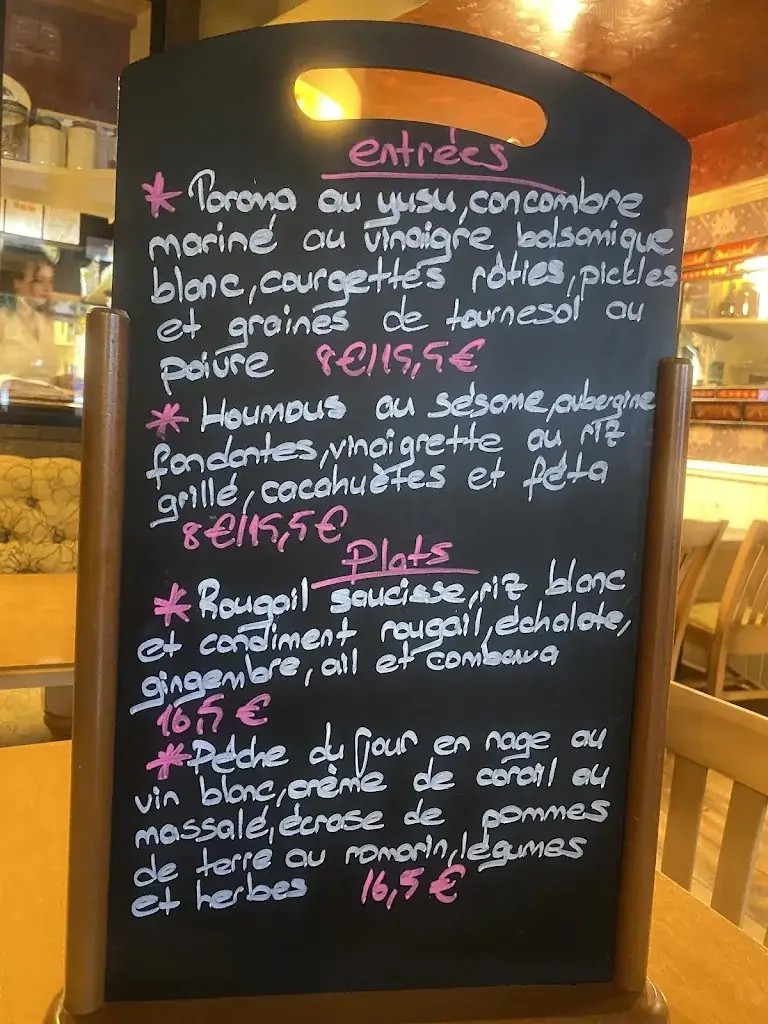 entrées
* Parama au yusu, concombre
mariné au vinaigre balsamique
blanc, courgettes rôties, pickles
et graines de tournesol au
poivre 8€/15,5€
* Houmous au sésame, aubergine
fondantes, vinaigrette au riz
grillé, cacahuètes et féta
8€/15,5€
Plats
* Rougail saucisse, riz blanc
et condiment rougail, échalote,
gingembre, ail et combava
16,5 €
* Pêche du jour en nage au
vin blanc, crème de corail au
massalé, écrasé de pommes
de terre au romarin, légumes
et herbes 16,5 €